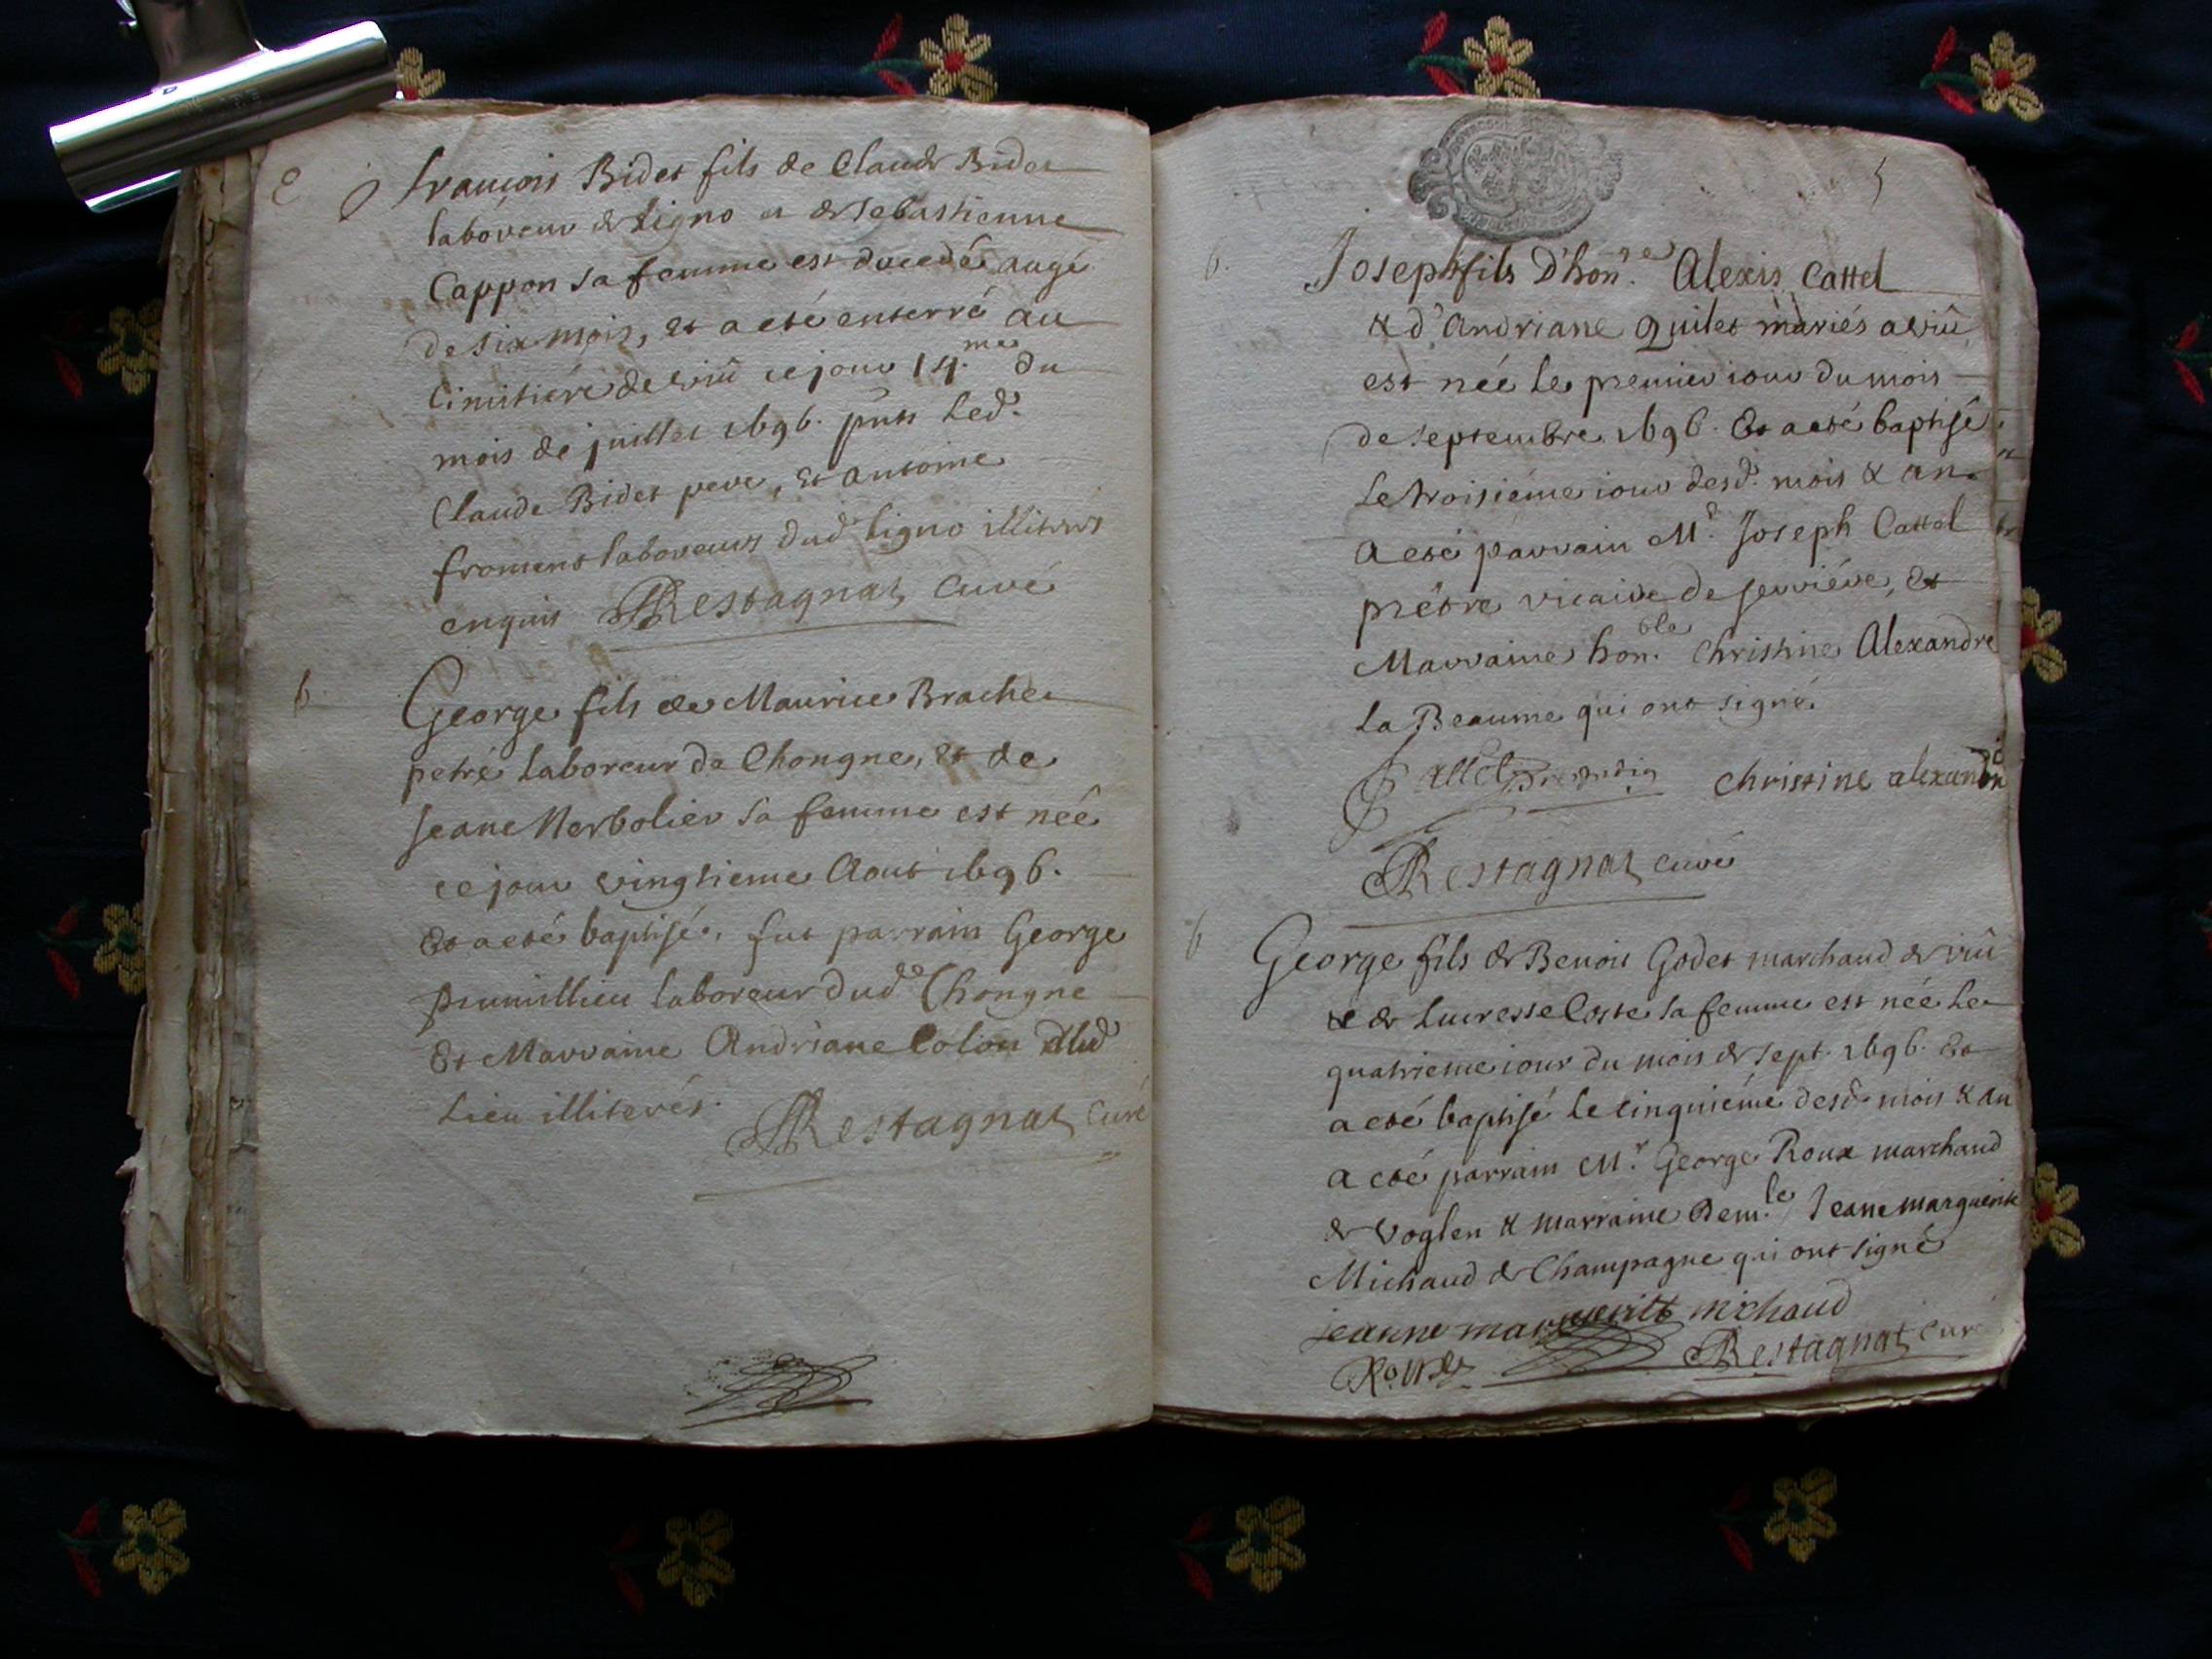 François Bidet fils de Claude Bidet
laboreur de Ligno et de Sebastienne
Cappon sa femme est decedé augé
de six mois, et a eté enterré au
Cimitiére de viriû ce jour 14.me du
mois de juillet 1696. pnts led.
Claude Bidet pere, et antoine
froment laboreurs dud Ligno illiterés
enquis Restagnat Curé
b.
George fils de Maurice Brachet
petré laboreur de Chongne, et de
Jeane Verbolier sa femme est néé
ce jour vingtieme Aout 1696.
Et a eté baptisé, fut parrain George
prumillieu laboreur dud Chongne
Et Marraine Andriane Colon dud
Lieu illiterés.
Restagnat Curé
5
b.
Joseph fils D'hon.re Alexis Cattel
& d'Andriane Quilet mariés a viriû
est néé le premier iour du mois
de septembre 1696. Et a eté baptisé
Le troisiéme iour desd. mois & an.
A eté parrain Mr. Joseph Cattel
prétre vicaire de serriére, Et
Marraine hon.ble Christine Alexandre
La Beaume qui ont signé.
christine alexandre
Restagnat curé
b
George fils de Benoit Godet marchand de viriû
& de Lucresse Coste sa femme est néé Le
quatrieme iour du mois de sept. 1696. Et
a eté baptisé le cinquiéme desd. mois & an
a eté parrain Mr. George Roux marchand
de Voglen & marraine Dem.le Jeane marguerite
Michaud de Champagne qui ont signé
jeanne marguerite michaud
Roux Restagnat curé